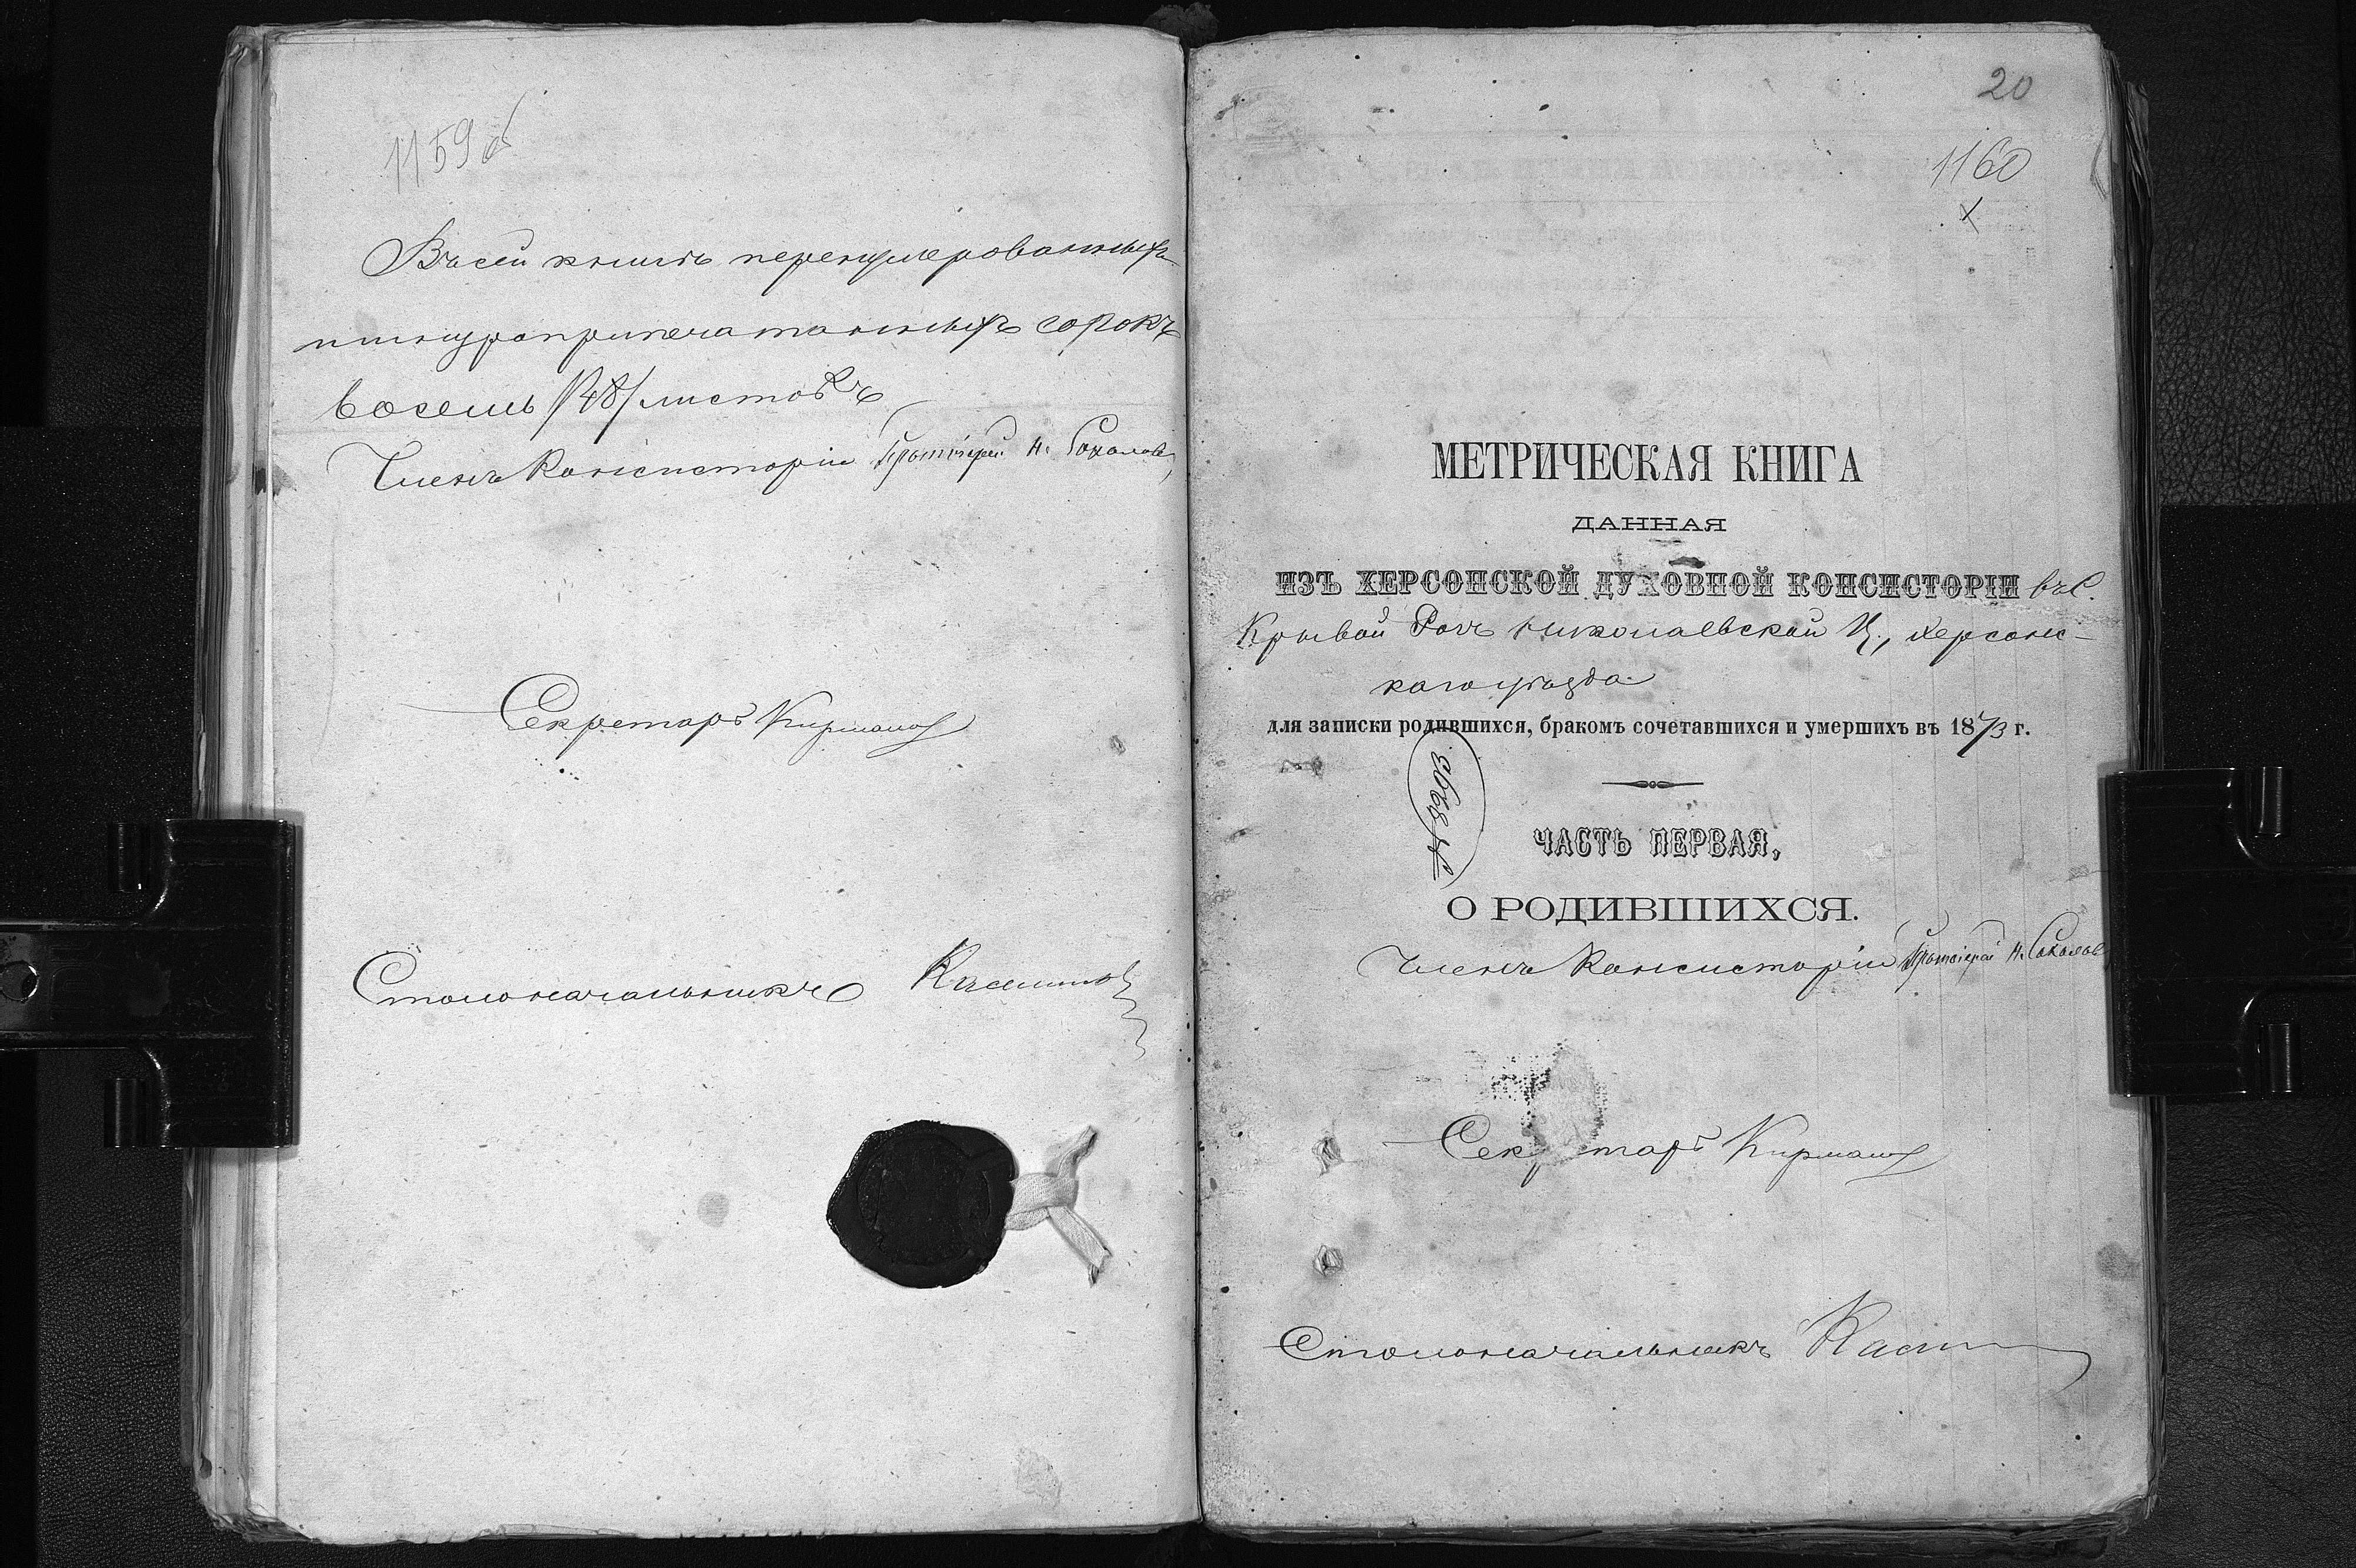 1159 об
Въ сей книгѣ перенумерованныхъ
и шнуроприпечатанныхъ сорокъ
восемь /48/ листовъ
Членъ Консисторіи Протоіерей Н. Соколовъ
Секретарь
Столоначальникъ
20
1160
МЕТРИЧЕСКАЯ КНИГА
ДАННАЯ
ИЗЪ ХЕРСОНСКОЙ ДУХОВНОЙ КОНСИСТОРІИ въ С.
Кривой Рогъ Николаевской Ц., Херсонс-
каго уѣзда
для записки родившихся, бракомъ сочетавшихся и умершихъ въ 1873 г.
ЧАСТЬ ПЕРВАЯ,
О РОДИВШИХСЯ.
Членъ Консисторіи Протоіерей Н. Соколовъ
Секретарь
Столоначальникъ